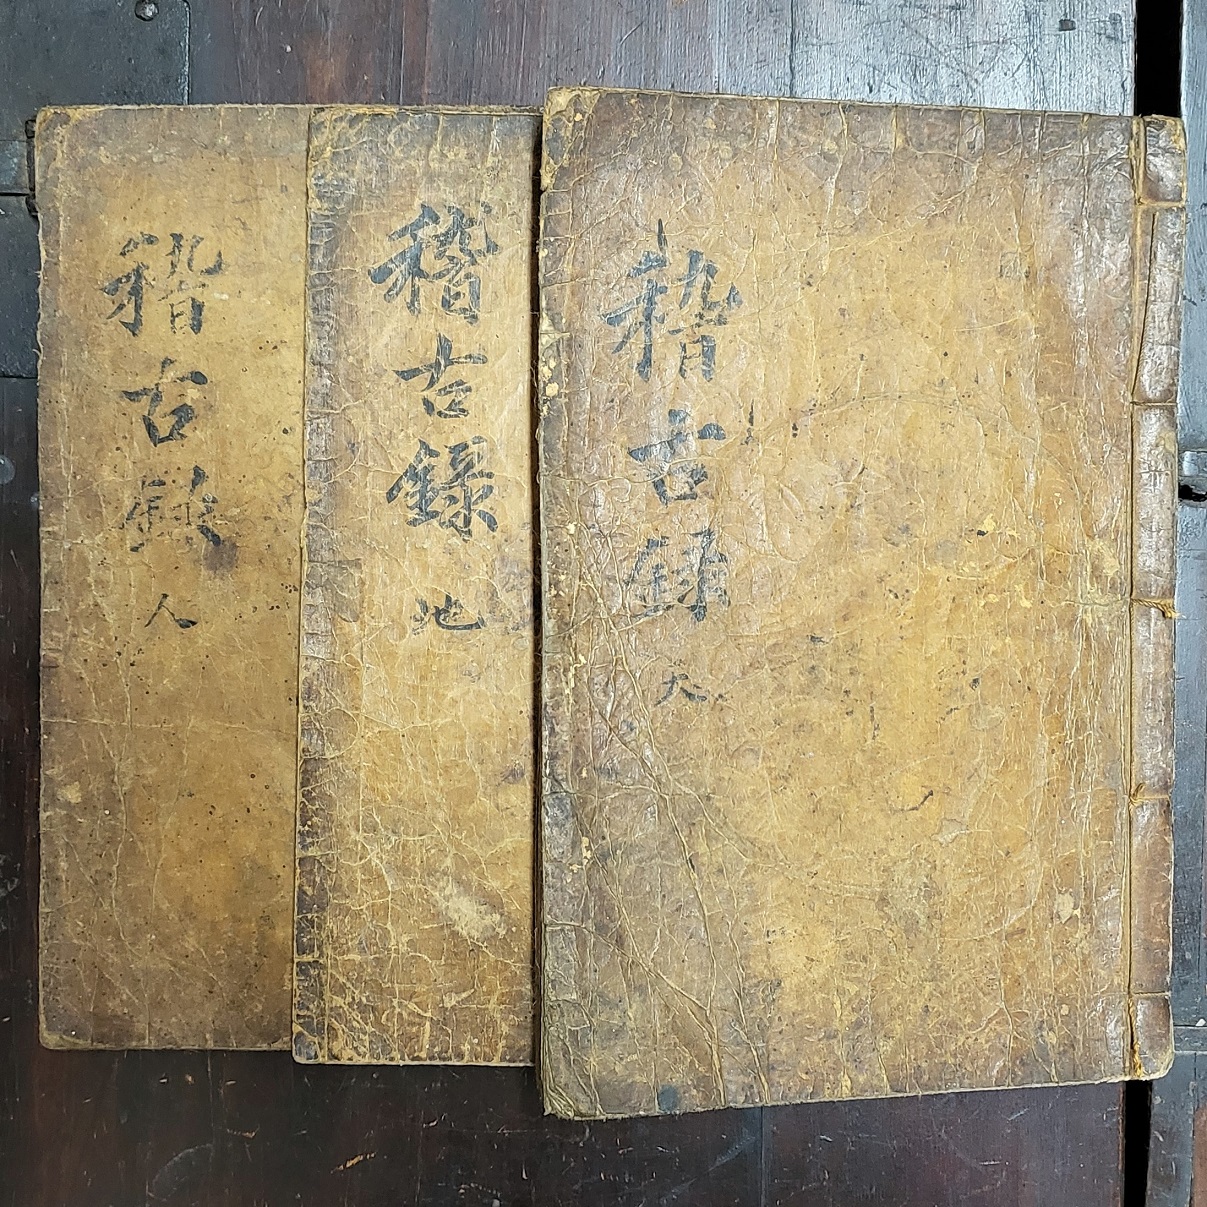 稽古錄 天
稽古錄 地
稽古錄 人